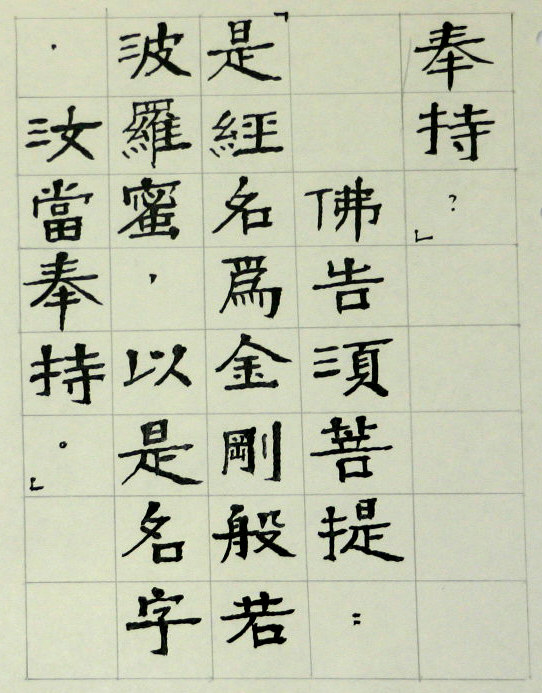 奉持？」
佛告須菩提：
「是經名爲金剛般若
波羅蜜，以是名字
，汝當奉持。」